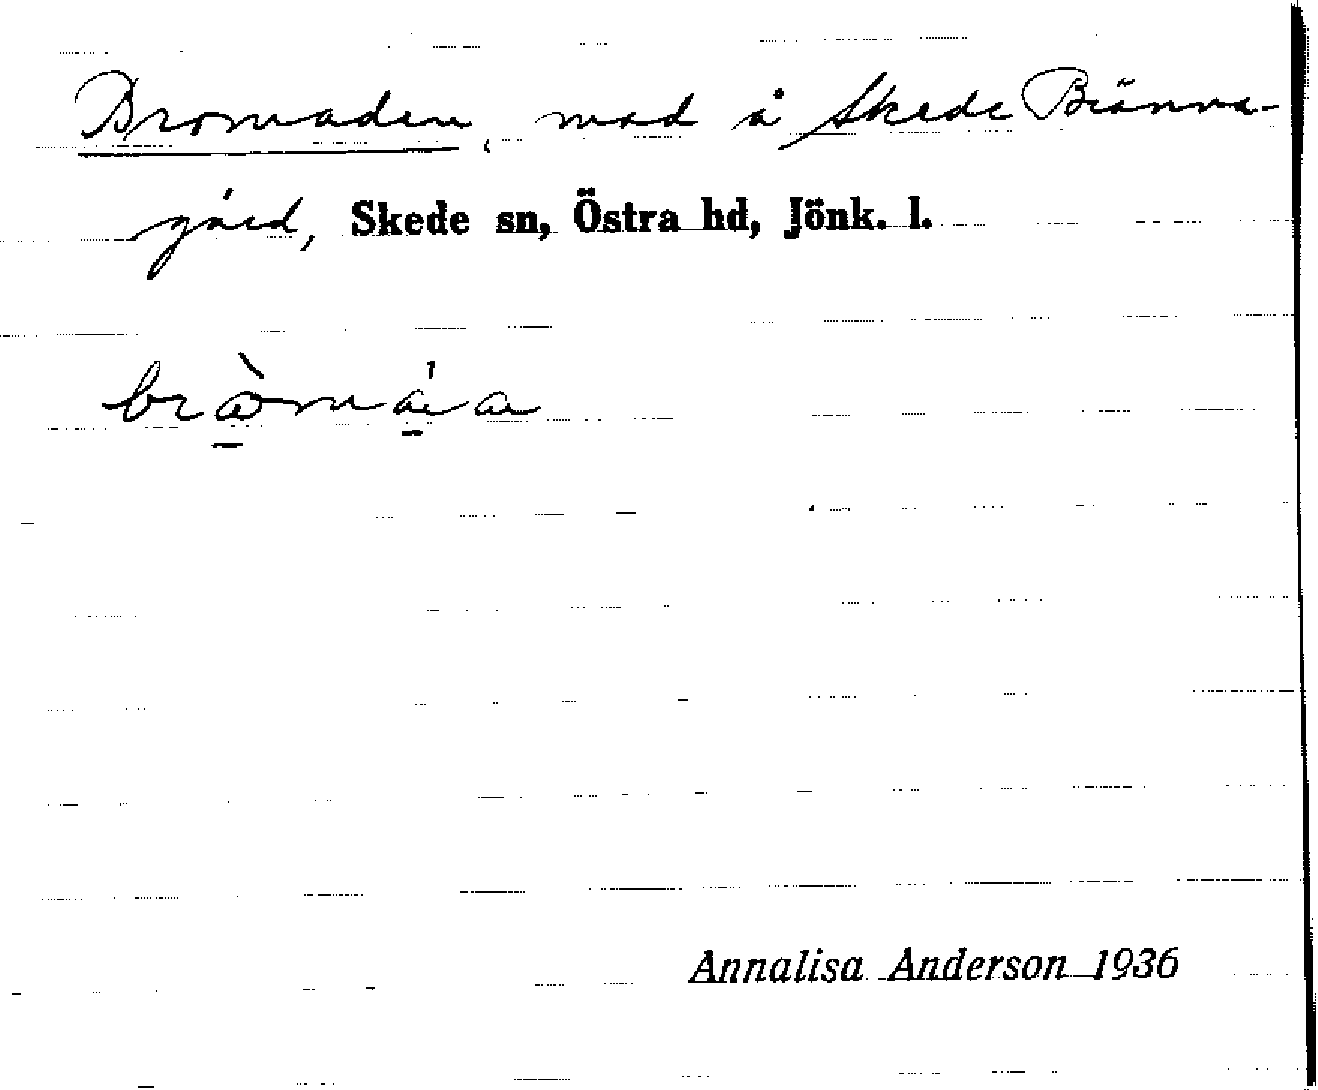 Bromaden, mad å Skede Bränna-
gård, Skede sn, Östra hd, Jönk. l.
Annalisa Anderson 1936